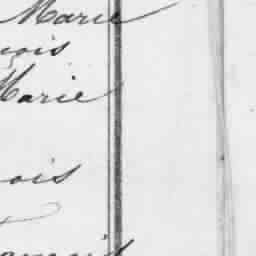 Marie
çois
Marie
ois